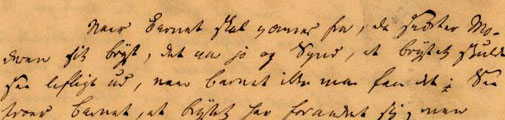 Naar Barnet skal vænnes fra, da sværter Mo-
deren sit Bryst, det var jo og Synd, at Brystet skulde
see lifligt ud, naar Barnet ikke maa faae det. Saa
troer Barnet, at Brystet har forandret sig, men